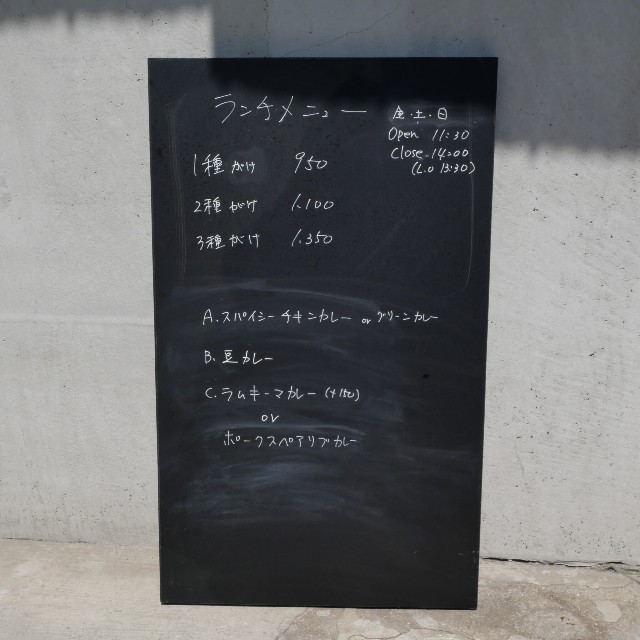 ランチメニュー
金.土.日
Open 11:30
Close 14:00
(L.O 13:30)
1種がけ 950
2種がけ 1.100
3種がけ 1.350
A. スパイシーチキンカレー or グリーンカレー
B. 豆カレー
C. ラムキーマカレー (+150)
or
ポークスペアリブカレー